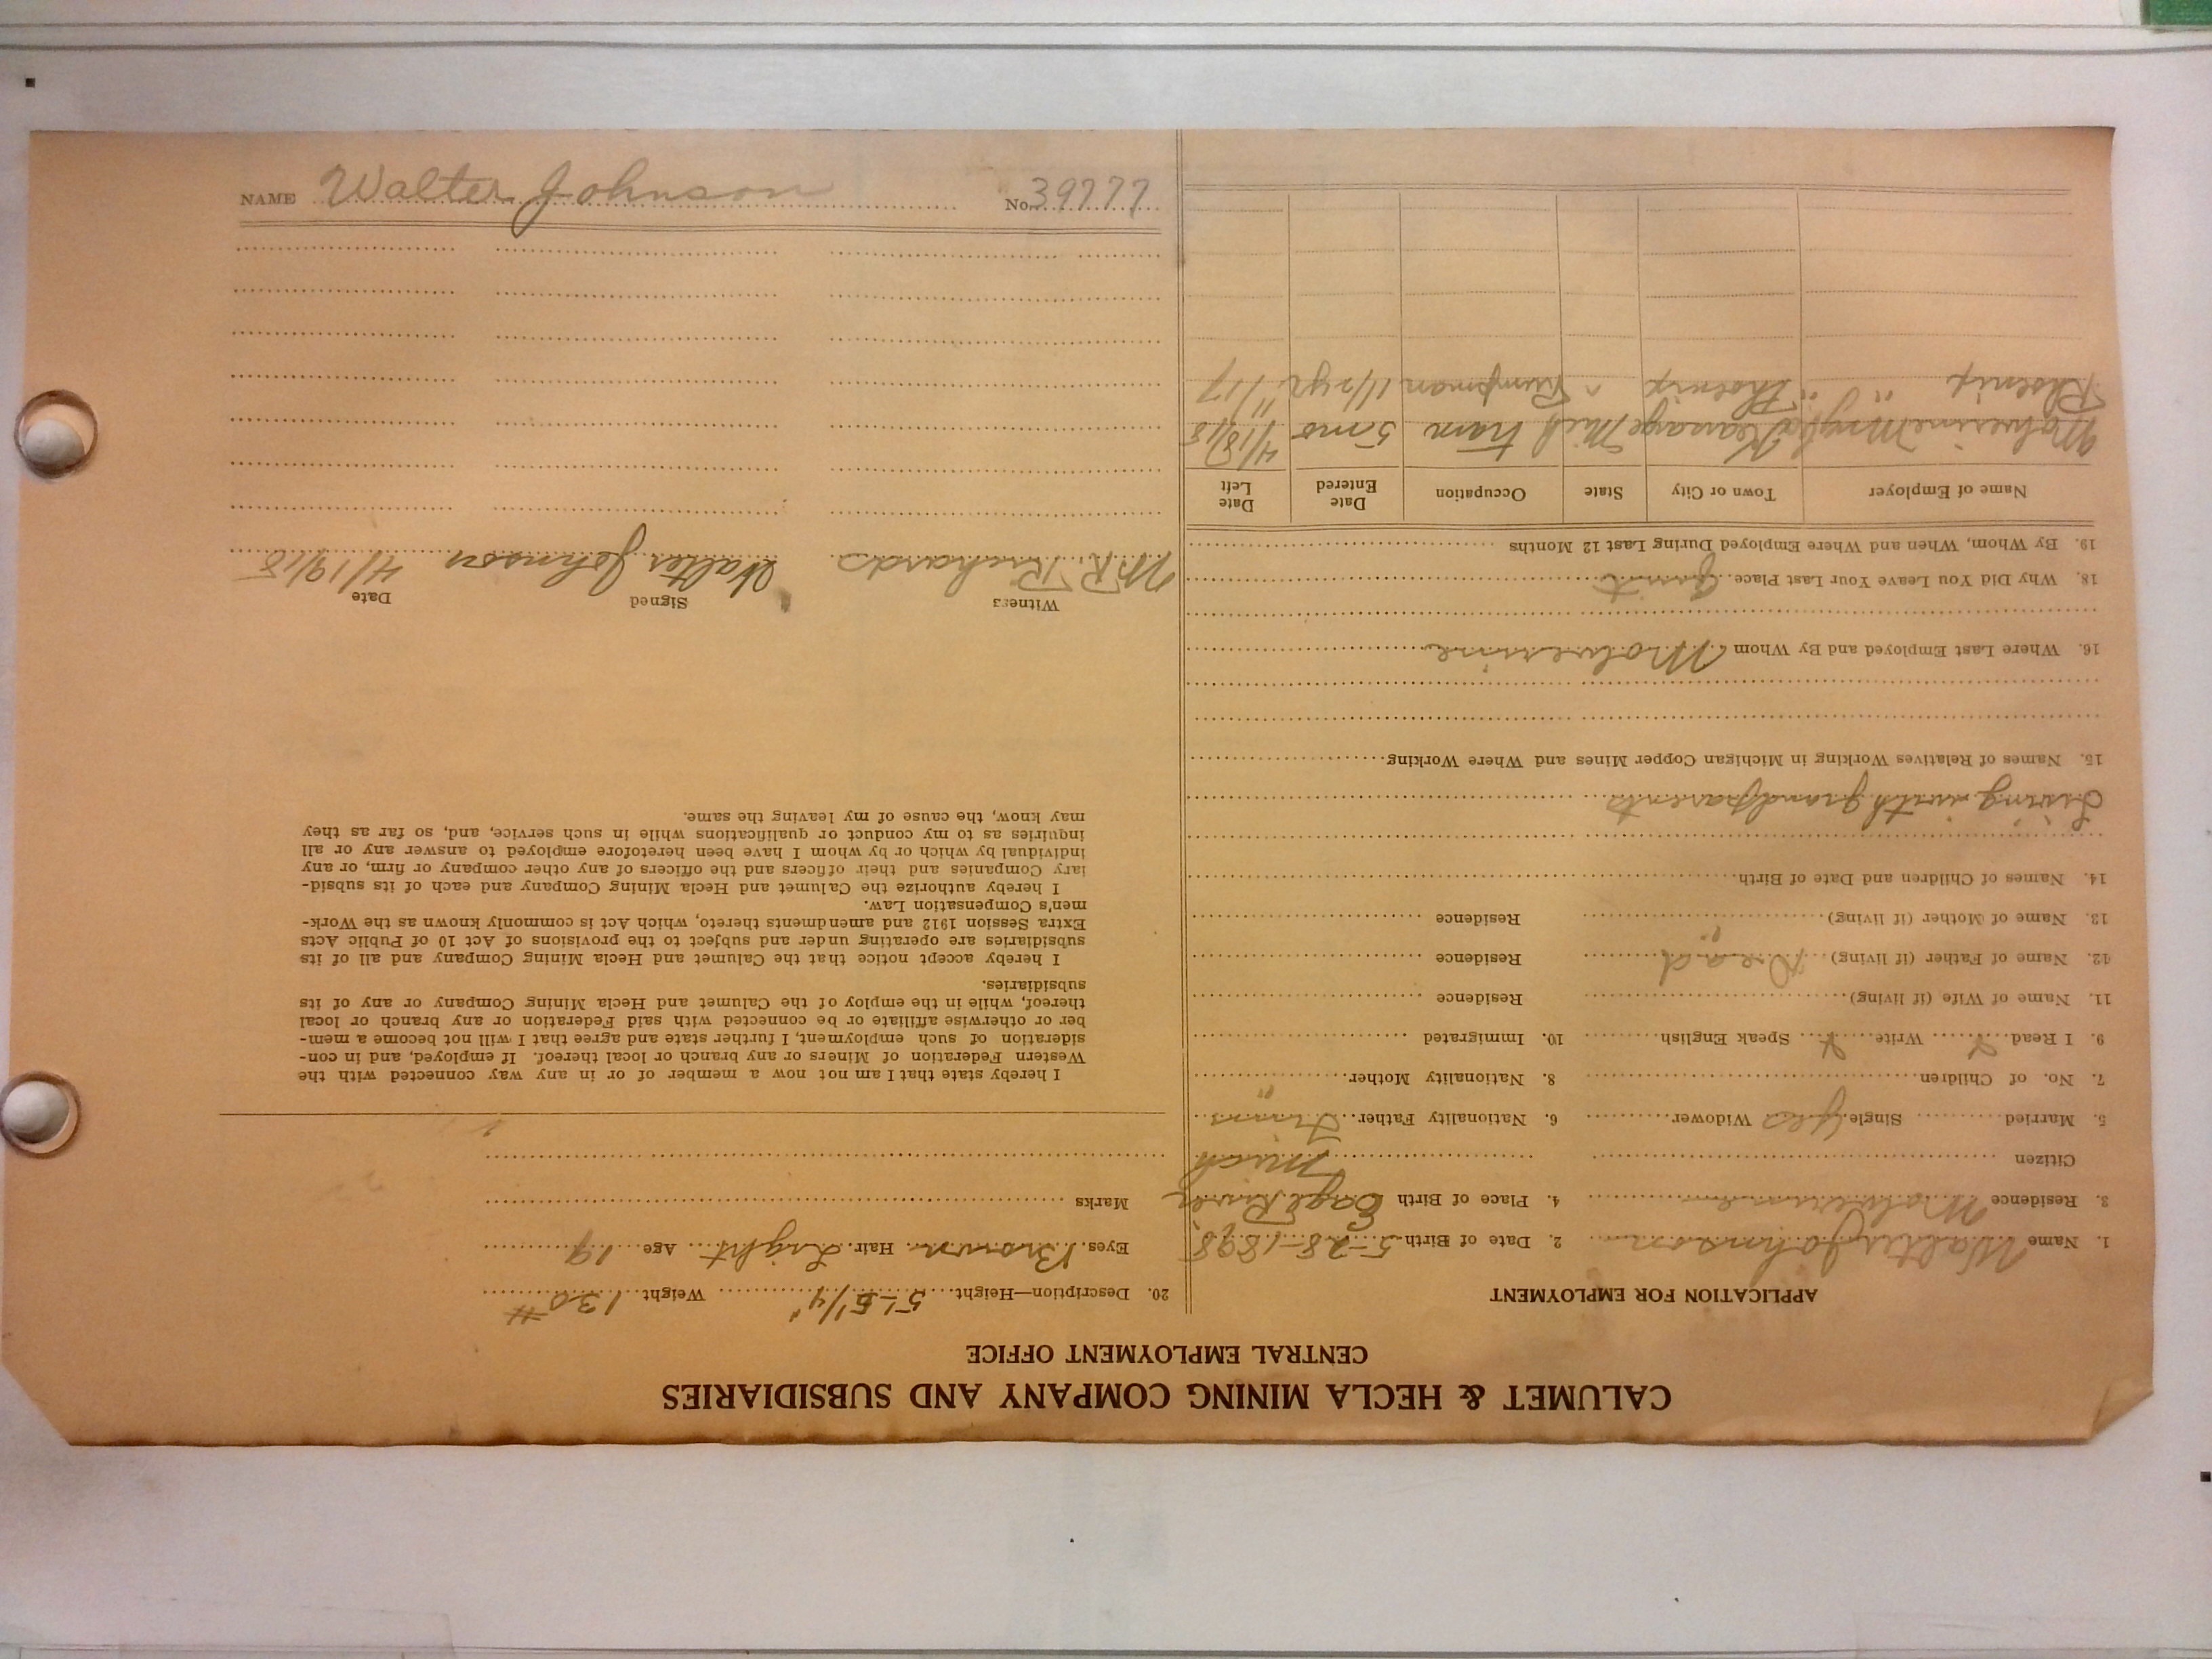 CALUMET & HECLA MINING COMPANY AND SUBSIDIARIES
CENTRAL EMPLOYMENT OFFICE
APPLICATION FOR EMPLOYMENT
1. Name Walter Johnson 2. Date of Birth 5-28-1898
3. Residence Wolverine 4. Place of Birth Eagle River
Citizen Mich
5. Married Single Yes Widower 6. Nationality Father Finns
7. No. of Children 8. Nationality Mother "
9. I Read Write Speak English 10. Immigrated
11. Name of Wife (if living) Residence
12. Name of Father (if living) Dead Residence
13. Name of Mother (if living) " Residence
14. Names of Children and Date of Birth
Living with grandparents
15. Names of Relatives Working in Michigan Copper Mines and Where Working
16. Where Last Employed and By Whom Wolverine
18. Why Did You Leave Your Last Place Quit
19. By Whom, When and Where Employed During Last 12 Months
Name of Employer Town or City State Occupation Date Entered Date Left
Wolverine Mng Co Kearsarge Mich tram 5 mo 4/18/18
Phoenix " " Phoenix " Pumpman 1 1/2 yr 11/17
20. Description—Height 5'-5 1/4" Weight 130#
Eyes Brown Hair Light Age 19
Marks
I hereby state that I am not now a member of or in any way connected with the
Western Federation of Miners or any branch or local thereof. If employed, and in con-
sideration of such employment, I further state and agree that I will not become a mem-
ber or otherwise affiliate or be connected with said Federation or any branch or local
thereof, while in the employ of the Calumet and Hecla Mining Company or any of its
subsidiaries.
I hereby accept notice that the Calumet and Hecla Mining Company and all of its
subsidiaries are operating under and subject to the provisions of Act 10 of Public Acts
Extra Session 1912 and amendments thereto, which Act is commonly known as the Work-
men's Compensation Law.
I hereby authorize the Calumet and Hecla Mining Company and each of its subsid-
iary Companies and their officers and the officers of any other company or firm, or any
individual by which or by whom I have been heretofore employed to answer any or all
inquiries as to my conduct or qualifications while in such service, and, so far as they
may know, the cause of my leaving the same.
Witness Signed Date
W.R. Richards Walter Johnson 4/19/18
NAME Walter Johnson No. 39777